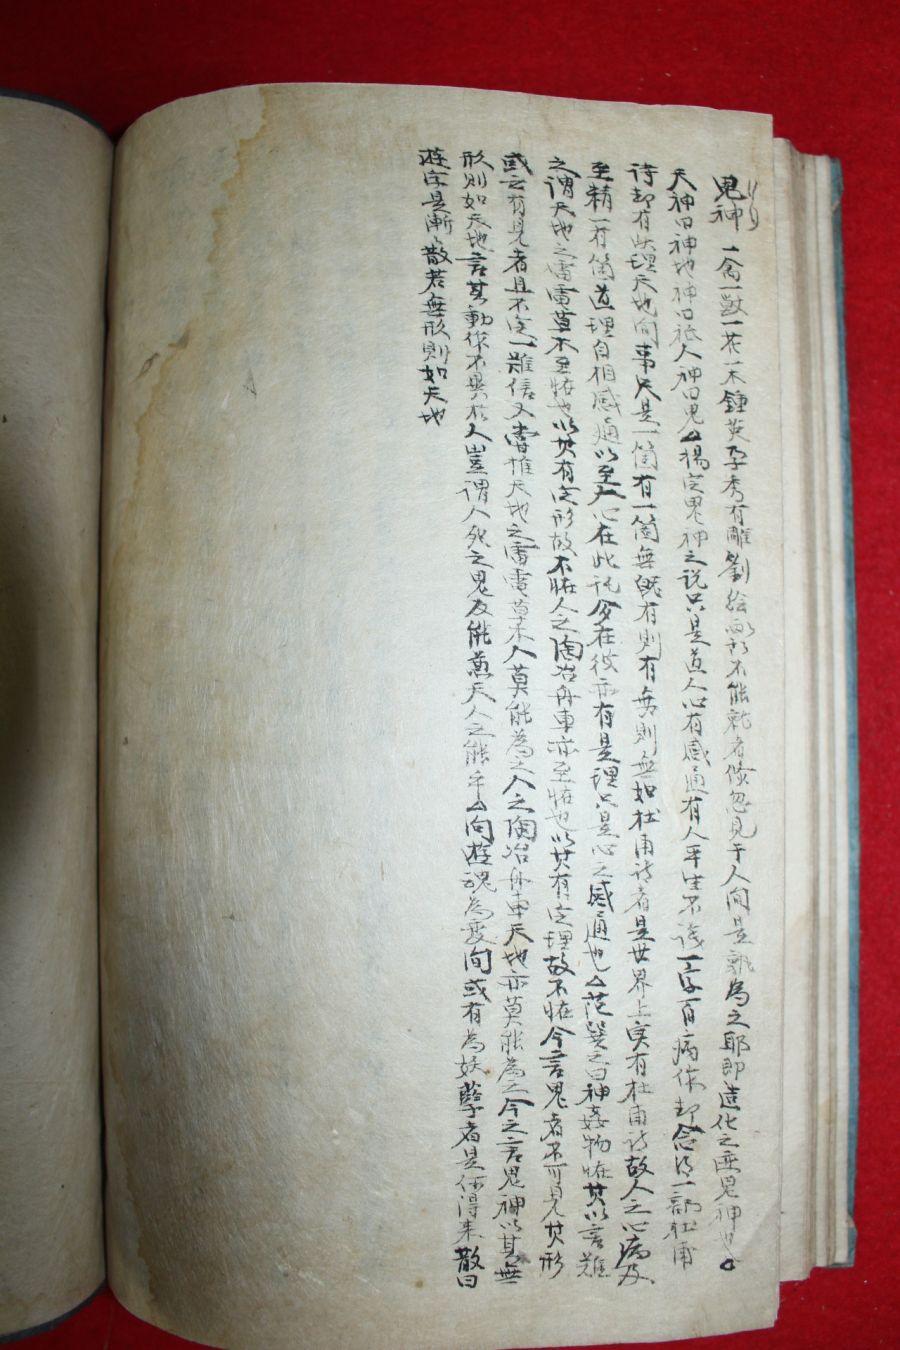 鬼神 一禽一獸一花一木鍾英孕秀有雕劉繪畵所不能就者倐忽見于人間是孰為之耶即造化之迹鬼神也△
天神曰神地神曰祗人神曰鬼△楊定鬼神之說只是道人心有感通有人平生不識一字一日病作却念得一部杜甫
詩却有此理天地間事只是一箇有一箇無旣有則有無則無如杜甫詩者是世界上实有杜甫詩故人之心病及
至精一有箇道理自相感通以至人心在此託夢在彼亦有是理只是心之感通也△范巽之曰神姦物怪其以言難
之謂天地之雷電草木至怪也以其有定形故不怪人之陶冶舟車亦至怪也以其有定理故不怪今言鬼者不可見其形
或云有見者且不定一難信又嘗推天地之雷電草木人莫能為之人之陶冶舟車天地亦莫能為之今之言鬼神以其無
形則如天地言其動作不異於人豈謂人死之鬼反能兼天人之能乎△问遊魂為変间或有為妖孽者是作得未散曰
遊字是漸々散若無形則如天地